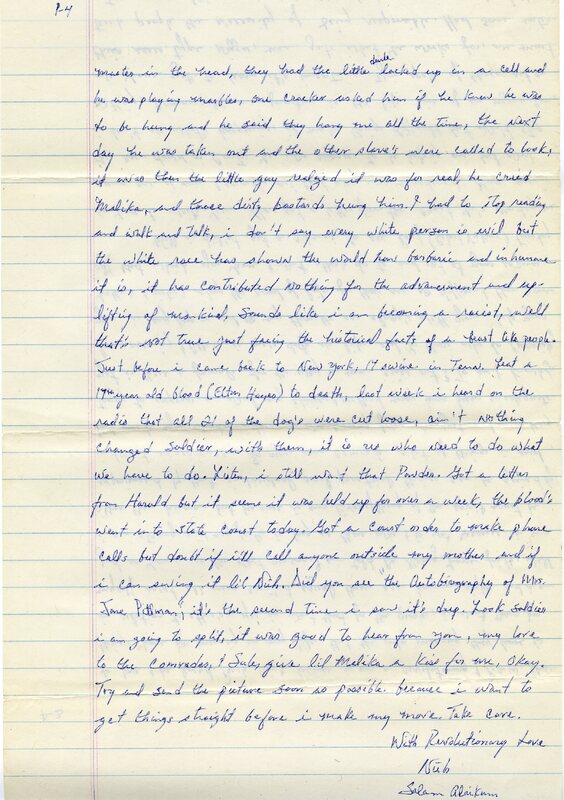 P-4
master in the head, they had the little dude locked up in a cell and
he was playing marbles, one cracker asked him if he knew he was
to be hung and he said they hang me all the time, the next
day he was taken out and the other slave's were called to look,
it was then the little guy realized it was for real, he cried
Malika, and those dirty bastards hung him. I had to stop reading
and walk and talk, i don't say every white person is evil but
the white race has shown the world how barbaric and inhumane
it is, it has contributed nothing for the advancement and up-
lifting of mankind, sounds like i am becoming a racist, well
that's not true just facing the historical facts of a beast like people.
Just before i came back to New York, 17 swine in Tenn. beat a
17th year old blood (Elton Hayes) to death, last week i heard on the
radio that all 21 of the dog's were cut loose, ain't nothing
changed Soldier, with them, it is us who need to do what
we have to do. Listen, i still want that Powder. Got a letter
from Harold but it seems it was held up for over a week, the blood's
went into State Court today. Got a Court order to make phone
calls but doubt if i'll call anyone outside my mother and if
i can swing it lil Nuh. Did you see "the Autobiography of Mrs.
Jane Pittman", it's the second time i saw it's deep. Look Soldier
i am going to split, it was good to hear from you, my love
to the Comrades, & give lil Malika a kiss for me, Okay.
Try and send the picture soon as possible. because i want to
get things straight before i make my move. Take care.
With Revolutionary Love
Nuh
Salam Alaikum